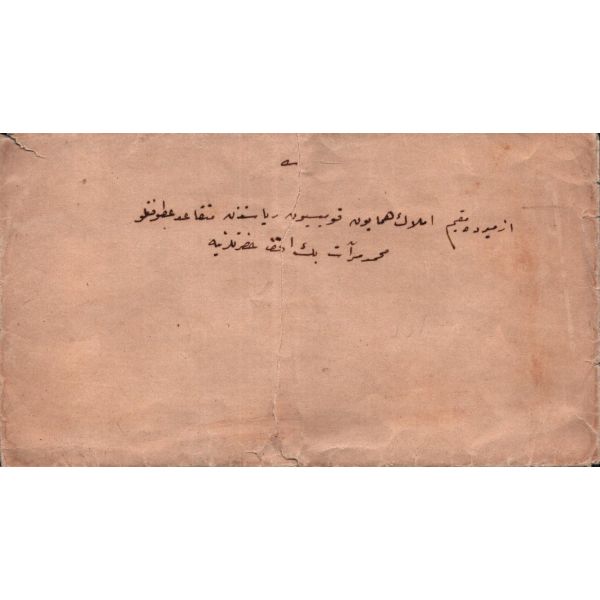 ازميرده مقيم املاك همايون قوميسيون رياستندن متقاعد عطوفتلو
محمد مرآت بك افندی حضرتلرينه